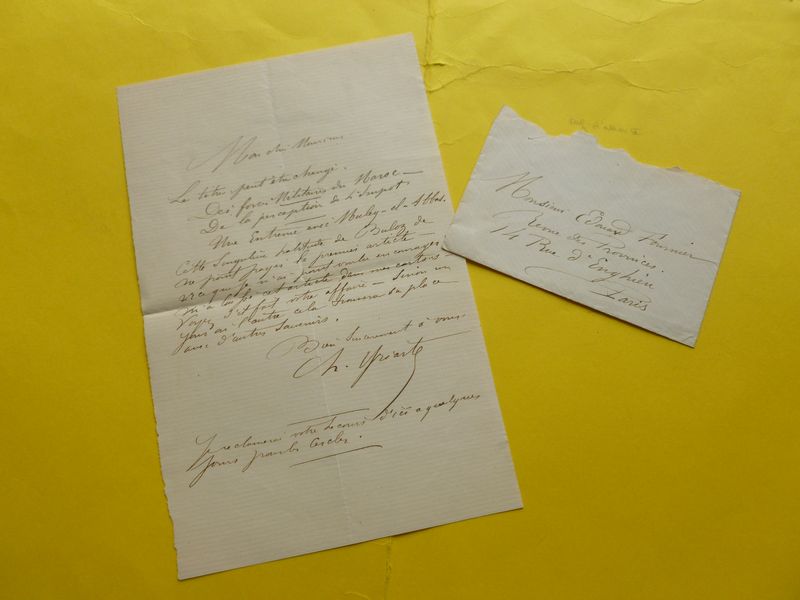 Mon cher Monsieur
Le titre peut être changé.
Des forces Militaires du Maroc —
De la perception de L'Impot,
Une Entrevue avec Muley-el-Abbas.
Cette Singulière habitude de Buloz de
ne point payer le premier article —
vice que je n'ai point voulu encourager
m'a laissé cet article dans mes cartons
Voyez s'il fait votre affaire — Sinon un
jour ou l'autre cela trouvera sa place
avec d'autres Souvenirs.
Bien Sincerement à vous
Ch. Yriarte
Je reclamerai votre Secours d'ici a quelques
jours pour les Cercles.
Monsieur Edouard Fournier
Revue des Provinces.
14 Rue d'Enghien
Paris